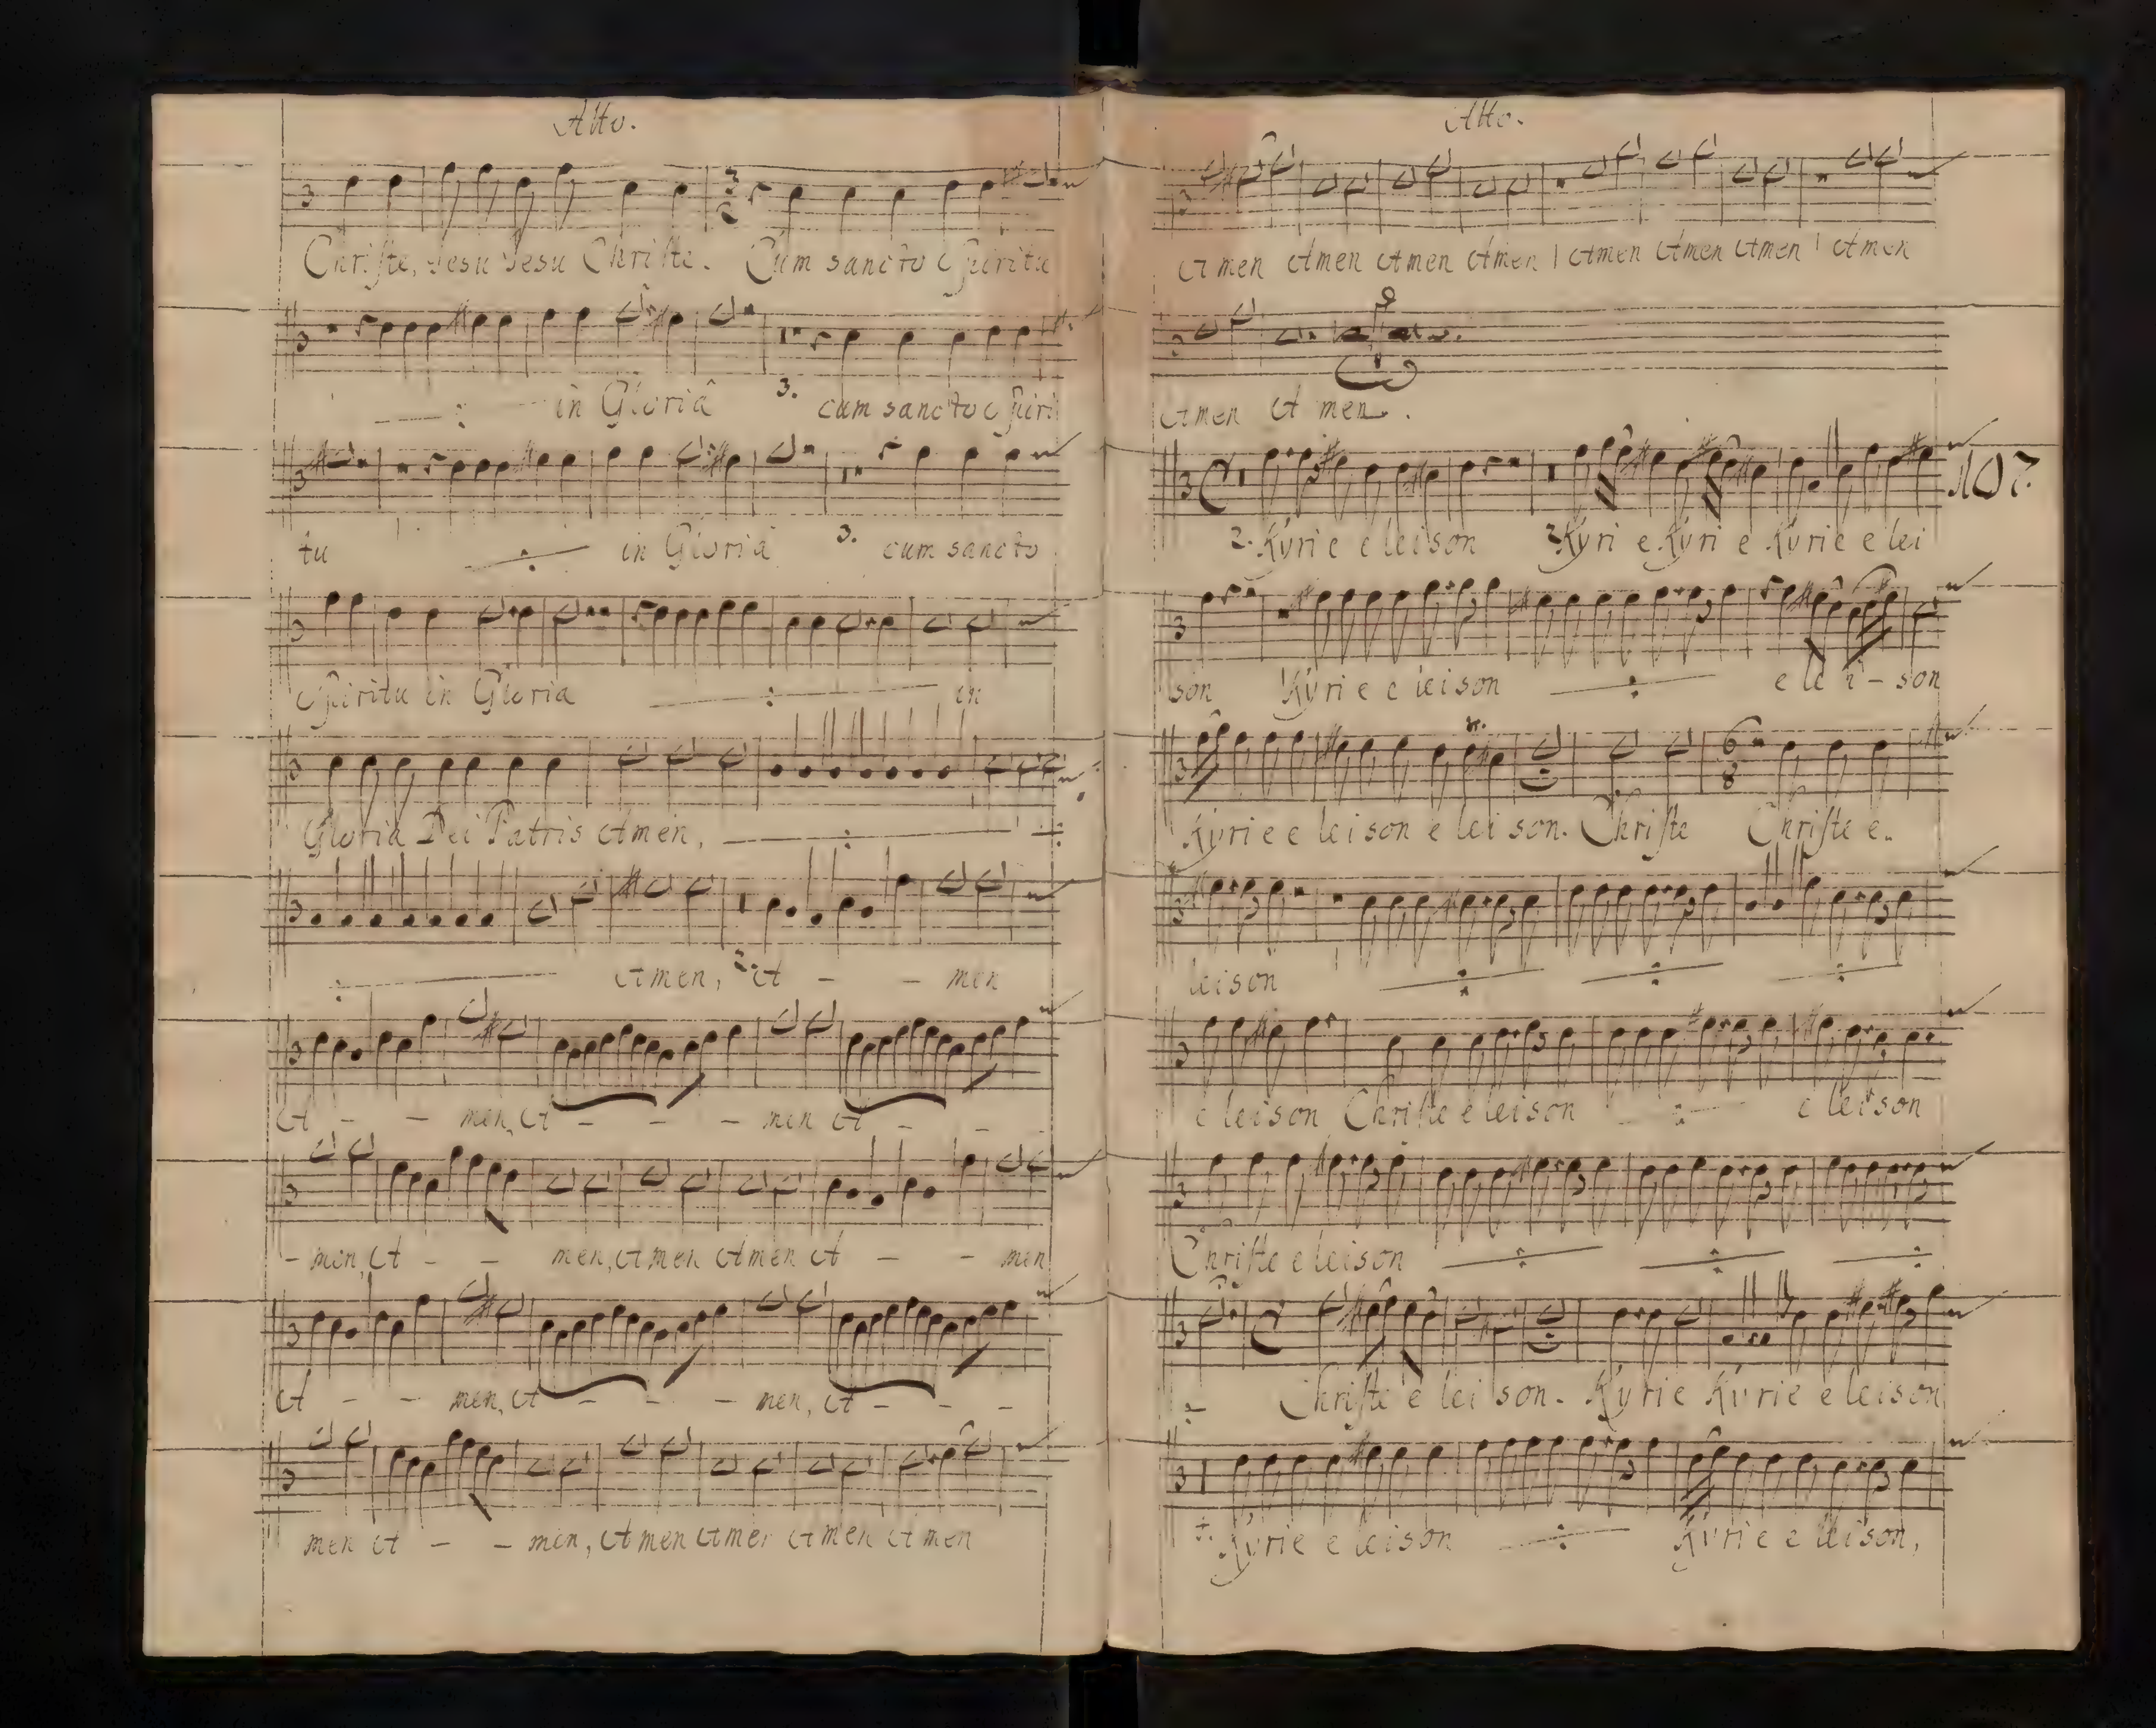 Alto.
Christe, Jesu Jesu Christe. Cum sancto Spiritu
in Gloriâ 3. cum sancto Spiri
tu in Gloria 3. cum sancto
Spiritu in Gloria in
Gloria Dei Patris Amen,
Amen, 2. A - - men
A - - men, A - - - men A - - -
- men, A - - men, Amen Amen A - - men
A - - men, A - - - men, A - - -
men A - - men, Amen Amen Amen Amen
Alto.
Amen Amen Amen Amen | Amen Amen Amen | Amen
Amen A men.
107.
2. Kyrie eleison 2. Kyri e Kyri e Kyrie e lei
son Kyri e e leison e le i - son
Kyrie e leison e lei son. Christe Christe e.
6 8
leison
e leison Christe e leison e leison
Christe e leison
Christe e lei son. Kyrie Kyrie e leison
Kyrie e leison Kyrie e leison,